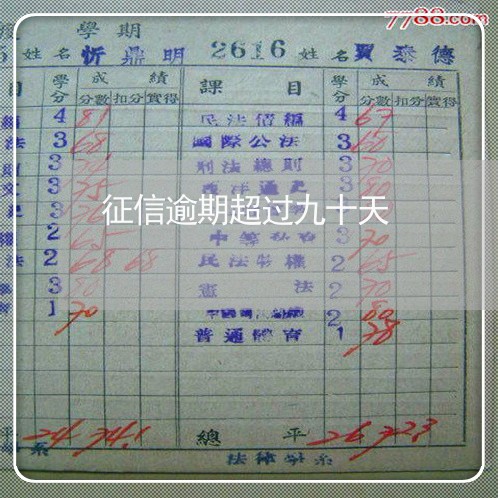 7788.com
學期
姓名 忻鼎明 2616 姓名 賈泰德
目 學分 成績 課目 學分 成績
分數 扣分 實得 分數 扣分 實得
4 81 民法債編 4 67
法 3 68 國際公法 3 60
3 刑法總則 3 70
3 75 西洋通史 3 80
征信逾期超过九十天
2 65 3 70
法 2 68 68 民法物權 2 65
3 80 憲法 2 70
1 70 2 80
普通體育 1 78
平 24 74.1 總平 26 72.3
系 法律學系